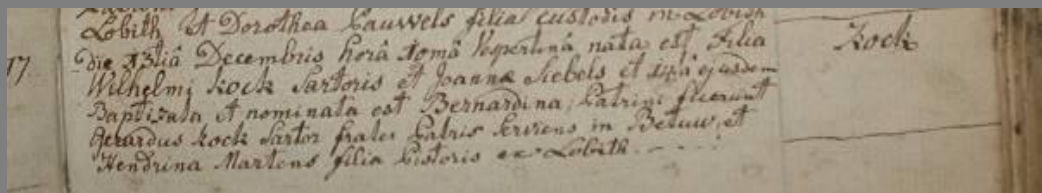 Lobith et Dorothea Pauwels filia custodis in Lobith
17
die 13tiâ Decembris horâ 10mâ Vespertinâ nata est Filia
Kock
Wilhelmi Kock Sartoris et Joannæ Siebels et 14tâ ejusdem
Baptizata et nominata est Bernardina; Patrini fuerunt
Gerardus Kock Sartor frater Patris Serviens in Betuw, et
Hendrina Martens filia Pistoris ex Lobith - - - - :